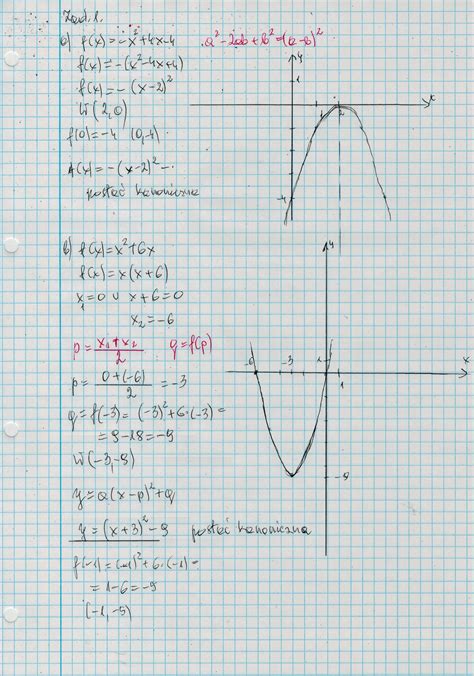 Zad. 1.
a) f(x)=-x²+4x-4 a²-2ab+b²=(a-b)²
f(x)=-(x²-4x+4)
f(x)=-(x-2)²
W(2,0)
f(0)=-4 (0,-4)
f(x)=-(x-2)²-
postać kanoniczna
y
1
x
1
2
-4
b) f(x)=x²+6x
f(x)=x(x+6)
x₁=0 ∪ x+6=0
x₂=-6
p=\frac{x₁+x₂}{2} q=f(p)
p=\frac{0+(-6)}{2}=-3
q=f(-3)=(-3)²+6·(-3)=
=9-18=-9
W(-3,-9)
y=a(x-p)²+q
y=(x+3)²-9 postać kanoniczna
f(-1)=(-1)²+6·(-1)=
=1-6=-5
(-1,-5)
y
-6
-3
1
x
1
-9